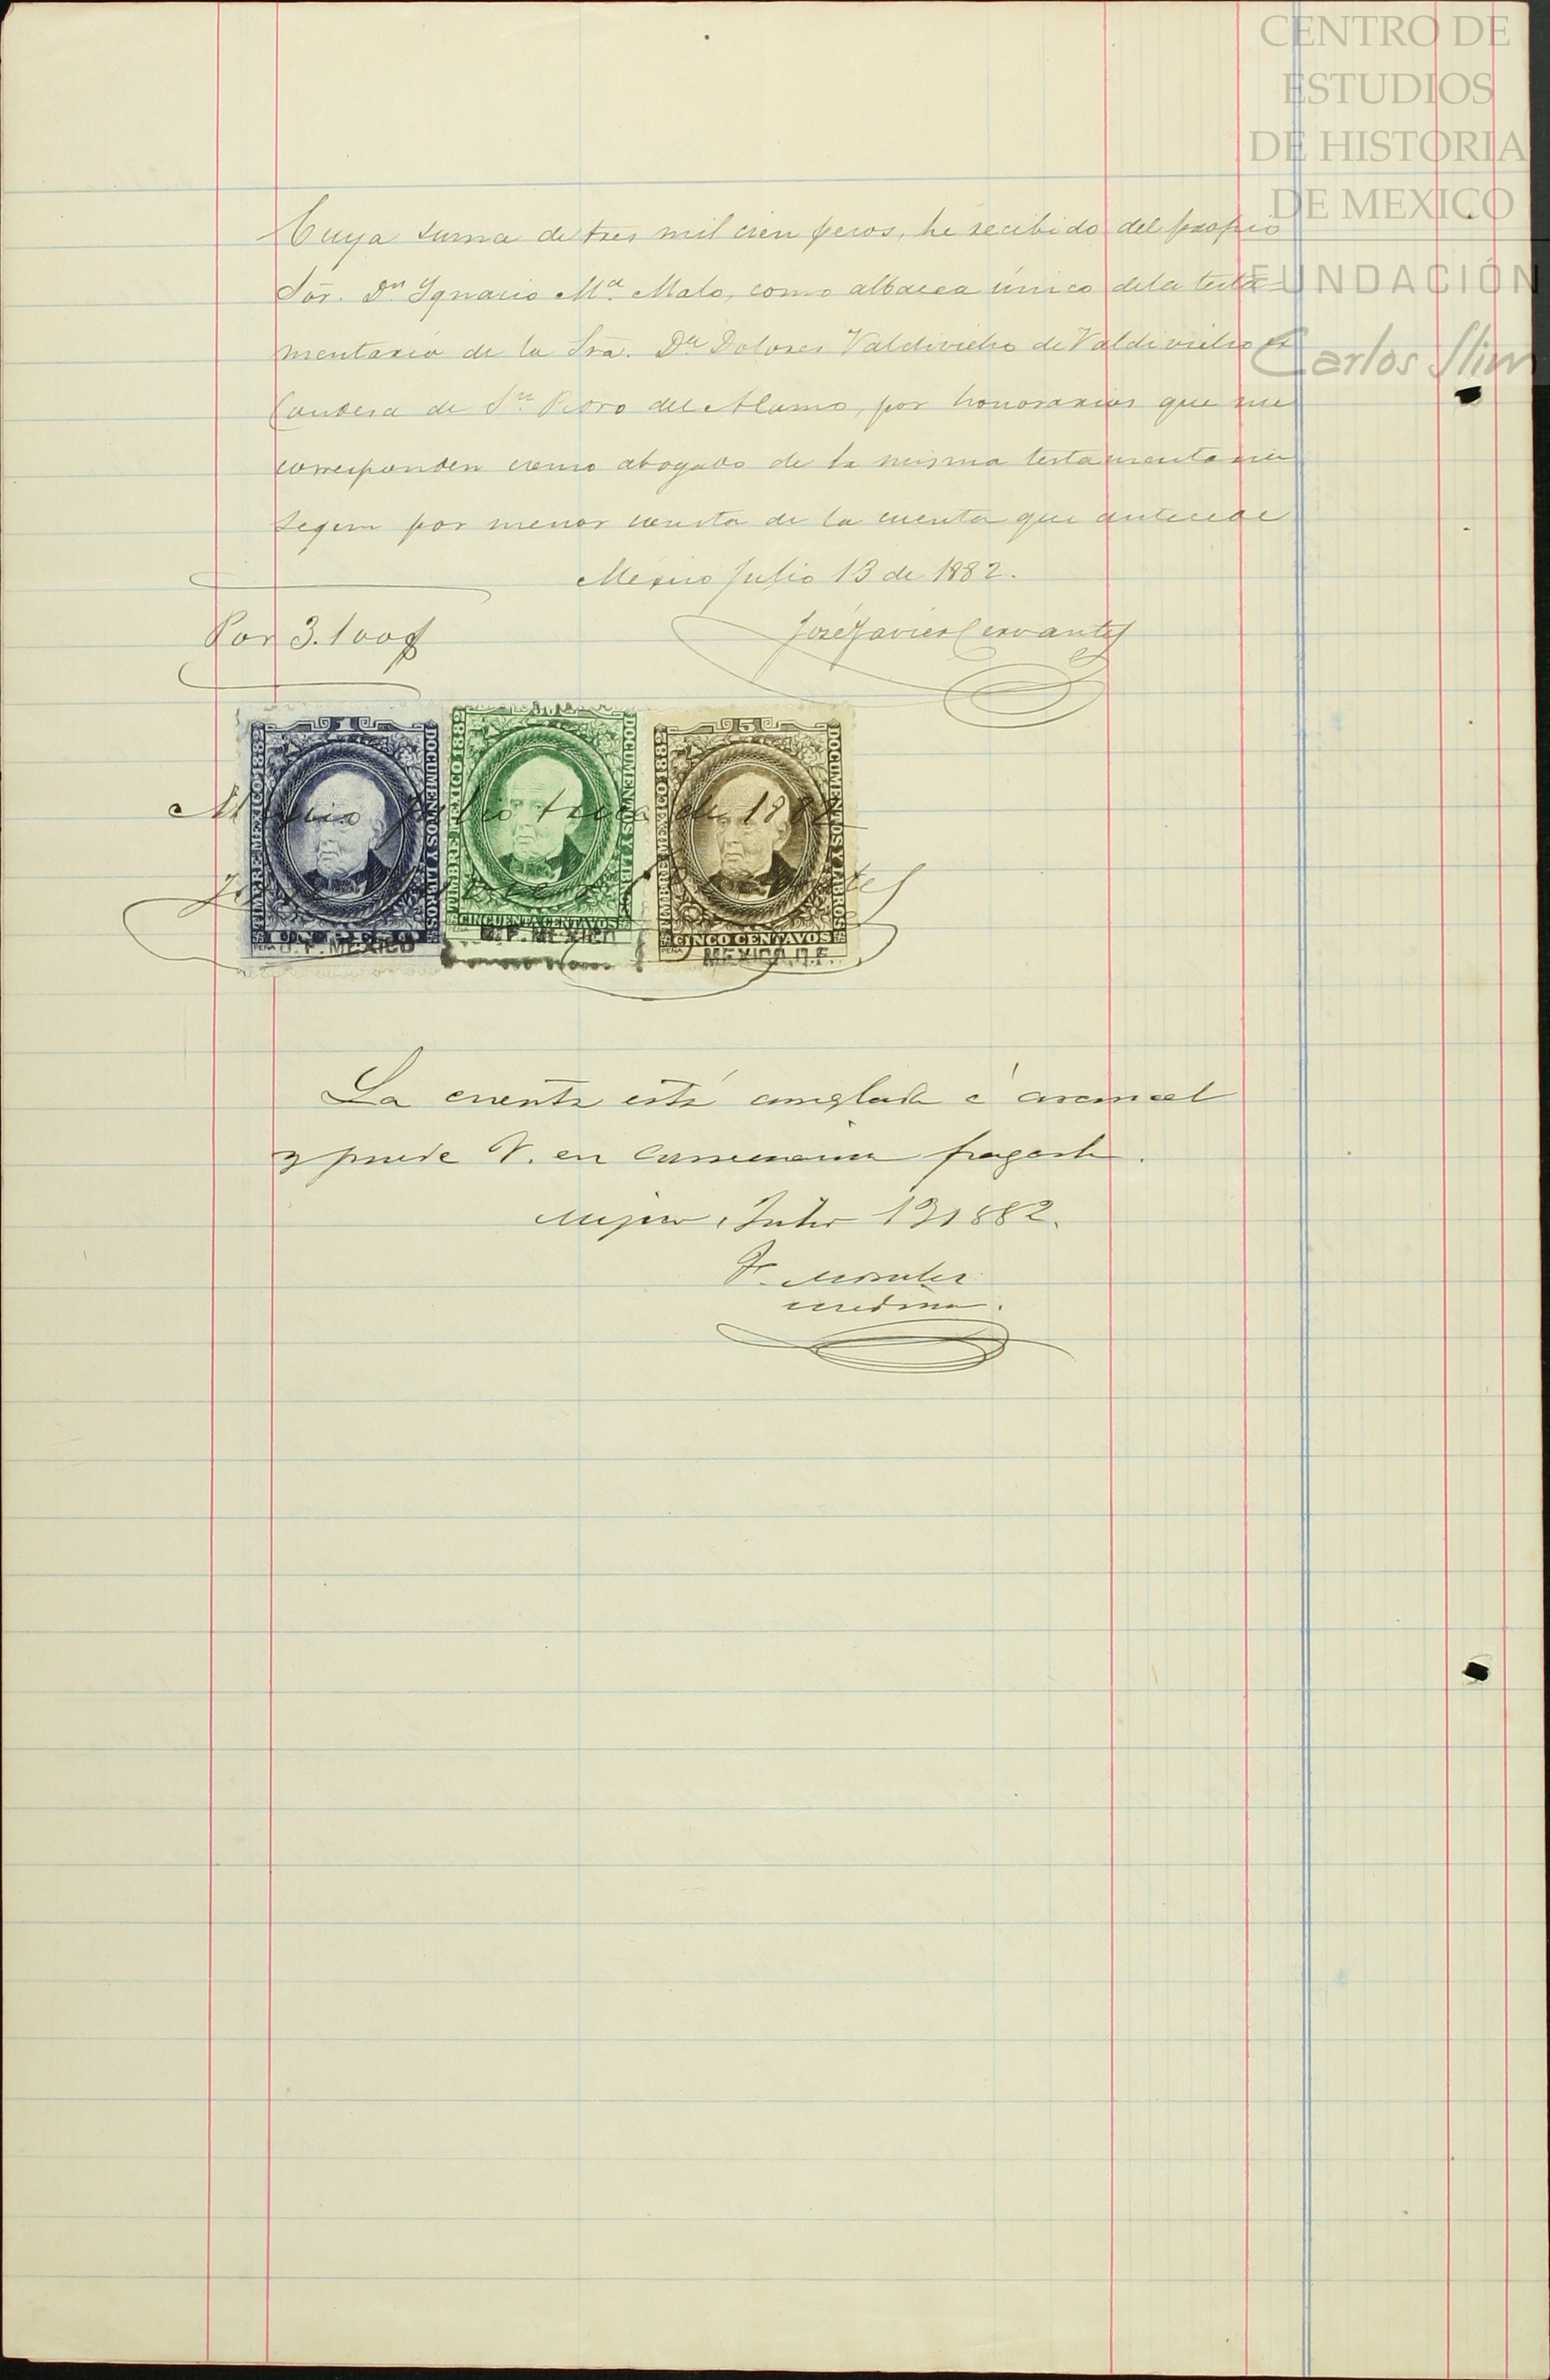 CENTRO DE
ESTUDIOS
DE HISTORIA
DE MEXICO
FUNDACIÓN
Carlos Slim
Cuya suma de tres mil cien pesos, he recibido del propio
Sōr. Dn Ygnacio Ma. Malo, como albacea único dela testa-
mentaria de la Sra. Da Dolores Valdivielso de Valdivielso ex
Condesa de Sn. Pedro del Alamo, por honorarios que me
corresponden como abogado de la misma testamentaria
segun por menor consta de la cuenta que antecede
México Julio 13 de 1882.
Por 3.100$
José Javier Cervantes
TIMBRE MEXICO 1882
DOCUMENTOS Y LIBROS
TIMBRE MEXICO 1882
DOCUMENTOS Y LIBROS
CINCUENTA CENTAVOS
5
TIMBRE MEXICO 1882
DOCUMENTOS Y LIBROS
CINCO CENTAVOS
México Julio trece de 1882
D. F. MEXICO
D. F. MEXICO
MEXICO D.F.
La cuenta está arreglada á arancel
y puede V. en consecuencia pagarla.
Mejico, Julio 13 1882.
F. Morales
Medina.